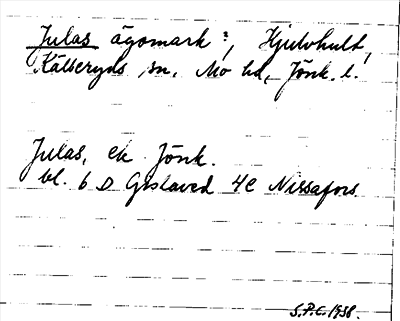 Julas ägomark?, Hjulohult,
Kållseryds sn, Mo hd, Jönk. l.
Julas, ek Jönk.
bl. 6 D Gislaved 4 e Nissafors
S.P.C. 1938.